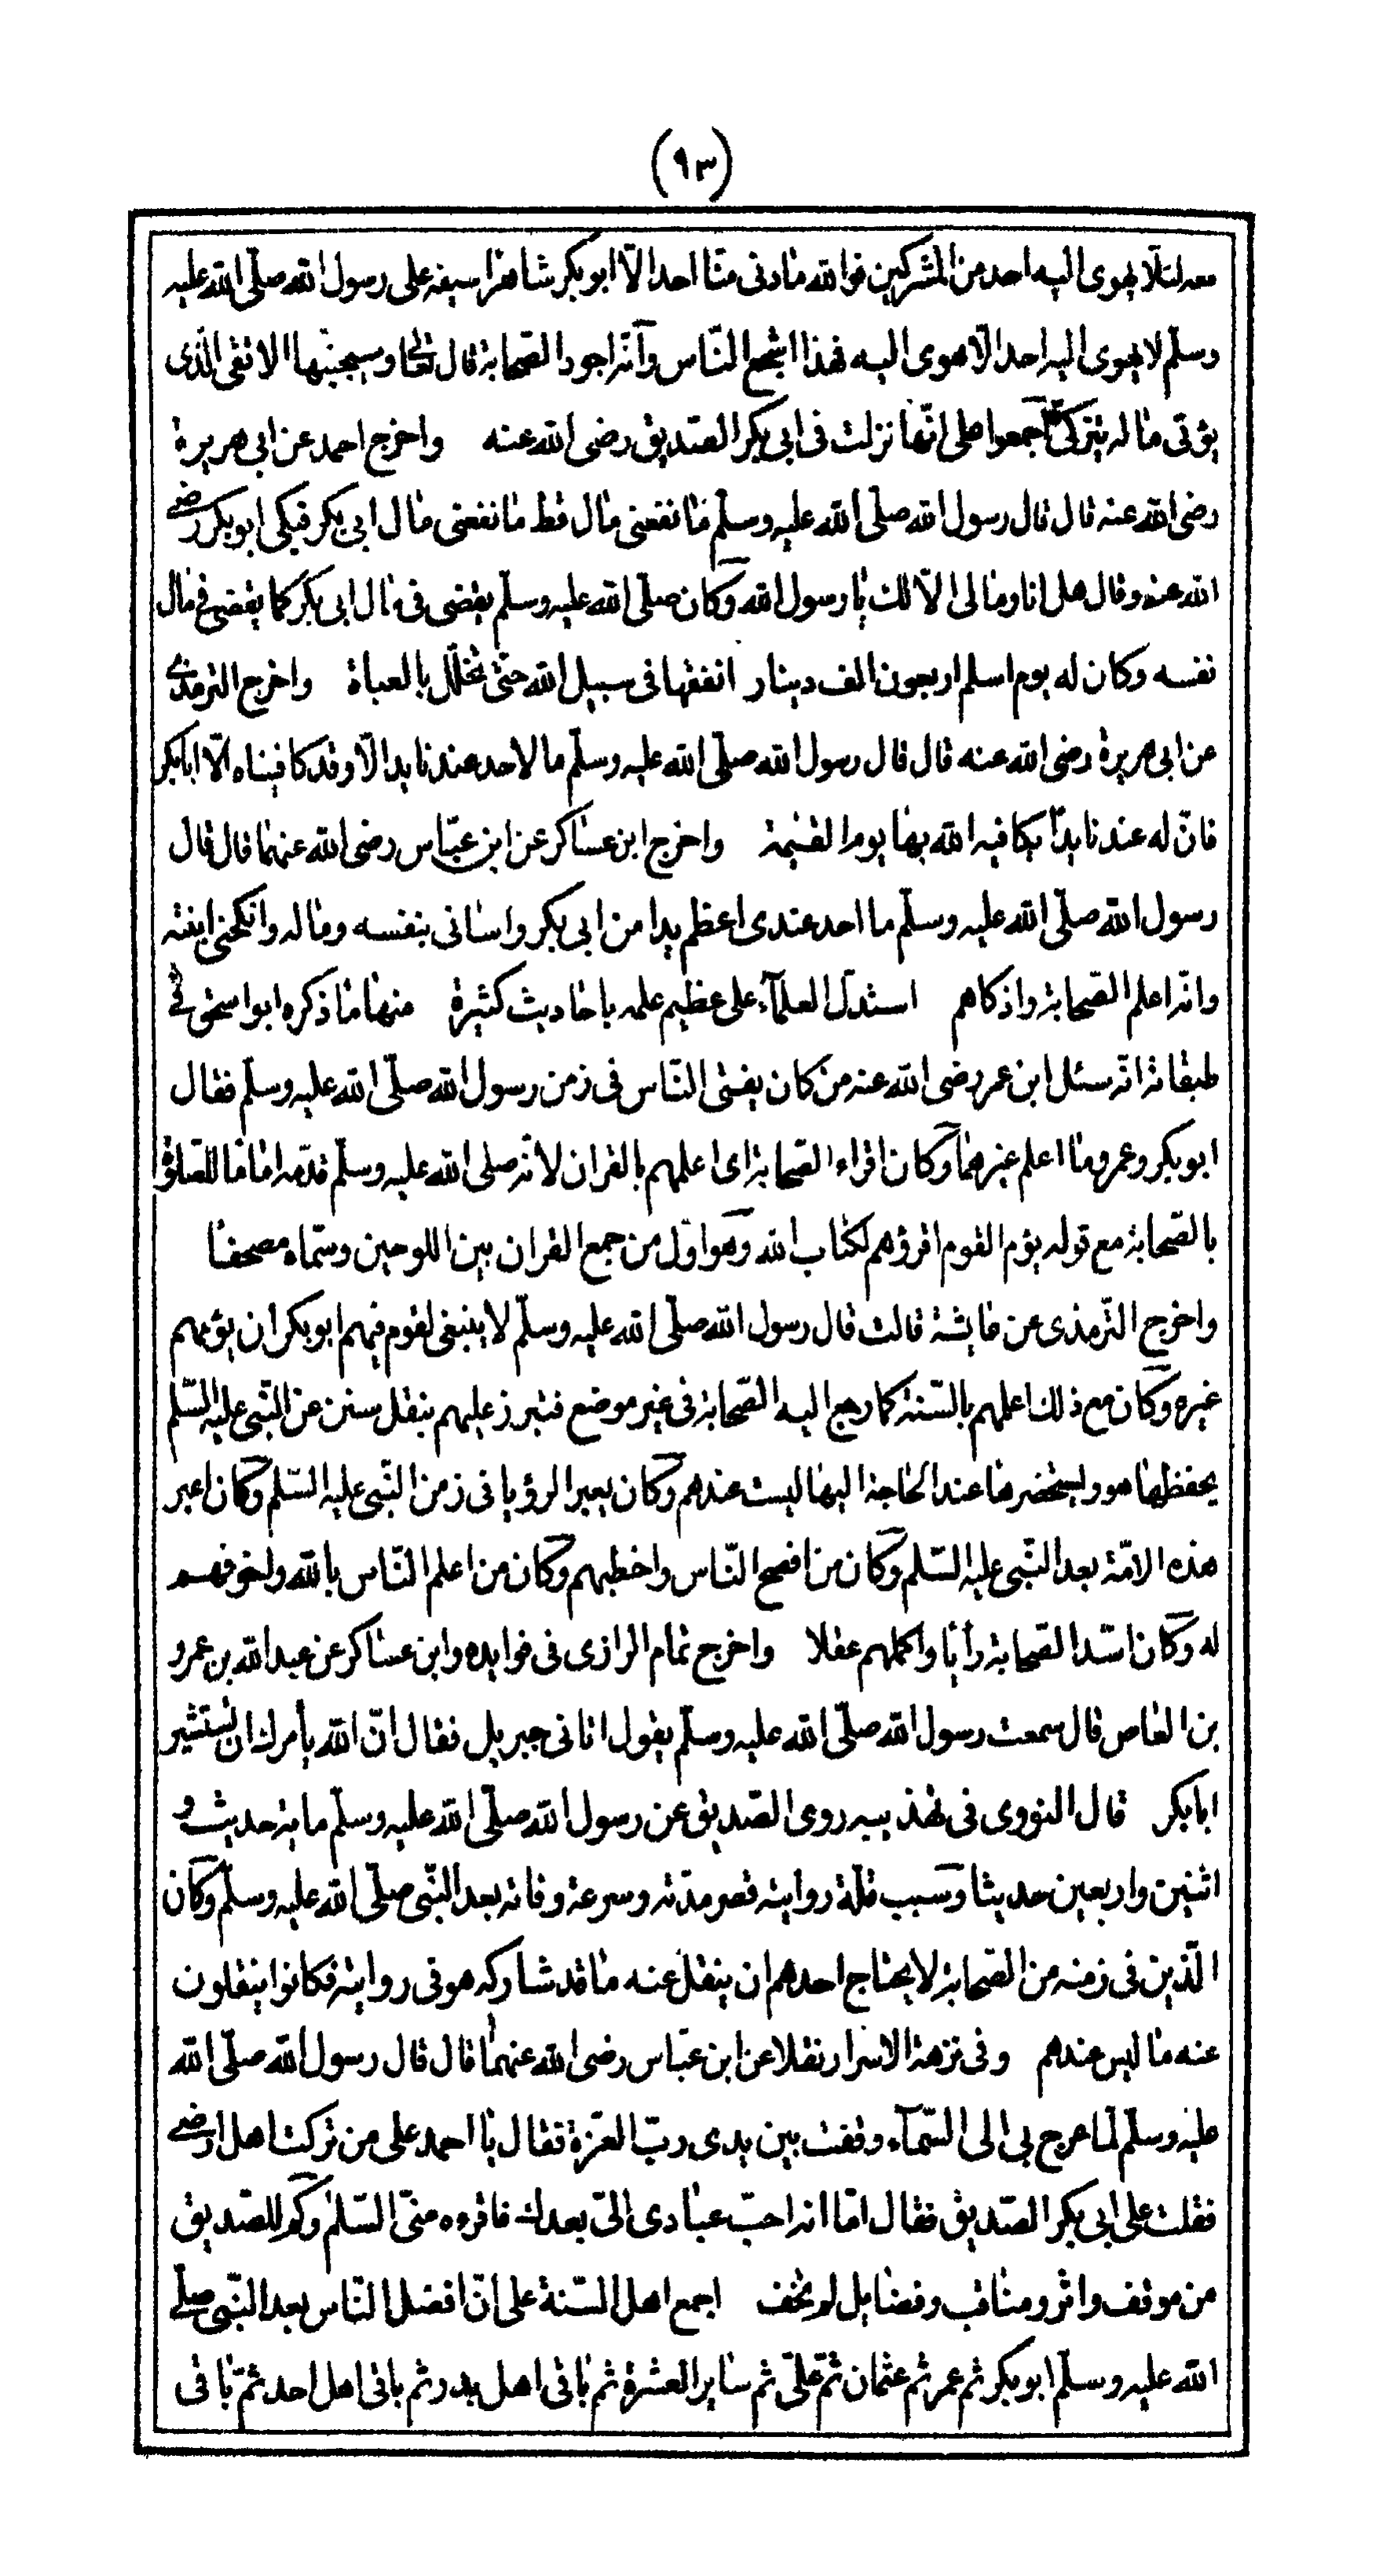 (٩٣)
معه لئلا يهوى اليه احد من المشركين فوالله مادنى منّا احد الّا ابو بكر شاهرا سيفه على رسول الله صلّى الله عليه
وسلّم لا يهوى اليه احد الّا هوى اليه فهذا اشجع النّاس وانّه اجود الصّحابة قال تعالى وسيجنّبها الاتقى الّذى
يؤتى ماله يتزكّى اجمعوا على انّها نزلت فى ابى بكر الصّديق رضى الله عنه واخرج احمد عن ابى هريرة
رضى الله عنه قال قال رسول الله صلّى الله عليه وسلّم مانفعنى مال قط مانفعنى مال ابى بكر فبكى ابو بكر رضى
الله عنه وقال هل انا ومالى الّا لك يا رسول الله وكان صلّى الله عليه وسلّم يقضى فى مال ابى بكر كما يقضى فى مال
نفسه وكان له يوم اسلم اربعون الف دينار انفقها فى سبيل الله حتّى تخلّل بالعباة واخرج الترمذى
عن ابى هريرة رضى الله عنه قال قال رسول الله صلّى الله عليه وسلّم ما لاحد عندنا يد الّا وقد كافيناه الّا ابا بكر
فانّ له عندنا يدّا يكافيه الله بها يوم القيٰمة واخرج ابن عساكر عن ابن عبّاس رضى الله عنهما قال قال
رسول الله صلّى الله عليه وسلّم ما احد عندى اعظم يدا من ابى بكر واسانى بنفسه وماله وانكحنى ابنته
وانّه اعلم الصّحابة واذكاهم استدلّ العلمآء على عظيم علمه باحاديث كثيرة منها ماذكره ابو اسحق فى
طبقاته انّه سئل ابن عمر رضى الله عنه من كان يفتى النّاس فى زمن رسول الله صلّى الله عليه وسلّم فقال
ابو بكر وعمر وما اعلم غيرهما وكان اقراء الصّحابة اى اعلمهم بالقران لانّه صلى الله عليه وسلّم قدّمه اماما للصّلوة
بالصّحابة مع قوله يؤم القوم اقرؤهم لكتاب الله وهو اوّل من جمع القران بين اللوحين وسمّاه مصحفا
واخرج التّرمذى عن عايشة قالت قال رسول الله صلّى الله عليه وسلّم لا ينبغى لقوم فيهم ابو بكر ان يؤمهم
غيره وكان مع ذلك اعلمهم بالسّنة كما رجع اليه الصّحابة فى غير موضع فتبرز عليهم بنقل سنن عن النّبى عليه السّلم
يحفظها هو ويستحضرها عند الحاجة اليها ليست عندهم وكان يعبر الرؤيا فى زمن النّبى عليه السّلم وكان اعبر
هذه الامّة بعد النّبى عليه السّلم وكان من افصح النّاس واخطبهم وكان من اعلم النّاس بالله واخوفهم
له وكان اسّد الصّحابة رأيا واكملهم عقلا واخرج تمام الرازى فى فوايده وابن عساكر عن عبد الله بن عمرو
بن العاص قال سمعت رسول الله صلّى الله عليه وسلّم يقول اتانى جبريل فقال انّ الله يأمرك ان تستشير
ابا بكر قال النووى فى تهذيبيه روى الصّديق عن رسول الله صلّى الله عليه وسلّم ماية حديث و
اثنين واربعين حديثا وسبب قلّة روايته قصر مدّته وسرعة وفاته بعد النّبى صلّى الله عليه وسلّم وكان
الّذين فى زمنه من الصّحابة لا يحتاج احدهم ان ينقل عنه ماقد شاركه هو فى روايته فكانوا ينقلون
عنه ماليس عندهم وفى نزهة الاسرار نقلا عن ابن عبّاس رضى الله عنهما قال قال رسول الله صلّى الله
عليه وسلّم لما عرج بى الى السّمآء وقفت بين يدى ربّ العزّة فقال يا احمد على من تركت اهل ارضى
فقلت على ابى بكر الصّديق فقال امّا انه احبّ عبادى الىّ بعدك فاقرءه منّى السّلم وكم للصّديق
من موقف واثر ومناقب وفضايل لم تخف اجمع اهل السّنة على انّ افضل النّاس بعد النّبى صلّى
الله عليه وسلّم ابو بكر ثم عمر ثم عثمان ثمّ علىّ ثم ساير العشرة ثم باقى اهل بدر ثم باقى اهل احد ثمّ باقى